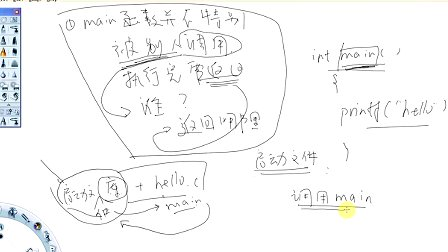 ① main函数并不特别
被别人调用
执行完要返回
谁？
返回
启动文件 库 + hello.c
main
int main(
{
printf("hello")
}
启动文件
调用main